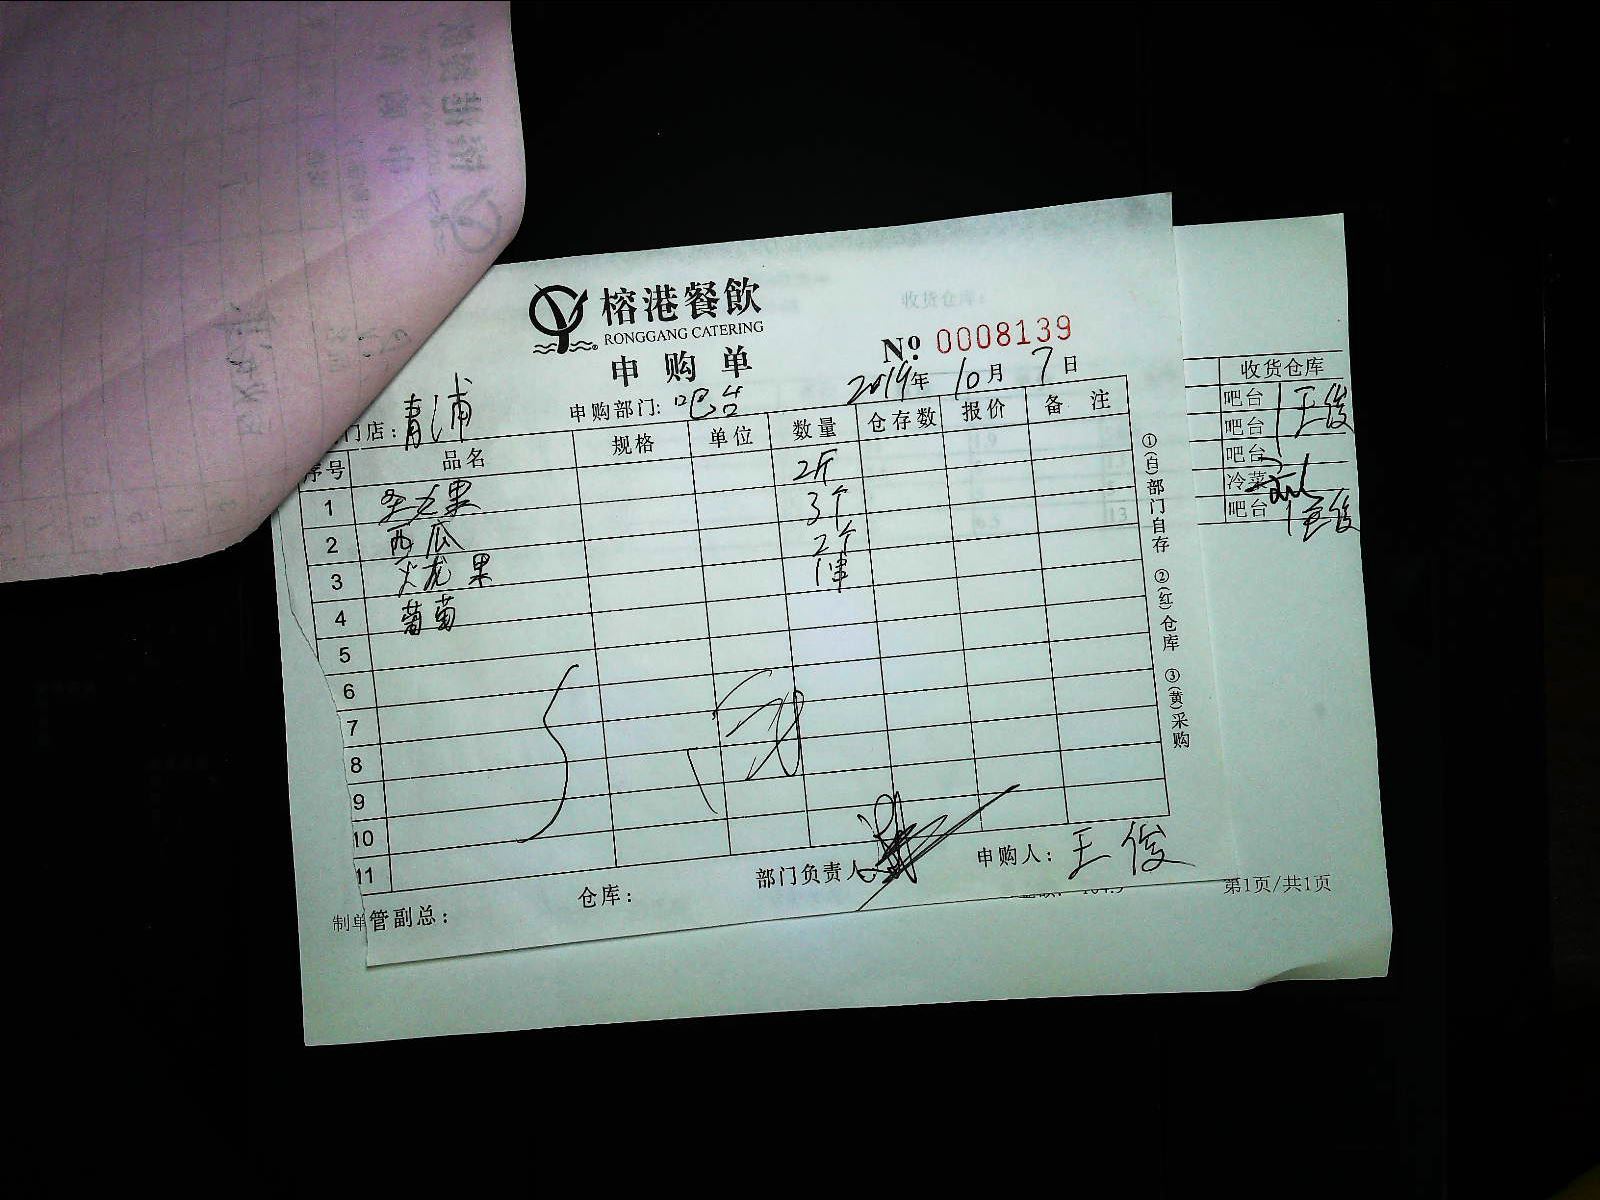 榕港餐飲
RONGGANG CATERING
申购单
№ 0008139
门店：青浦
申购部门：吧台
2019年10月7日
序号 品名 规格 单位 数量 仓存数 报价 备注
1 圣女果 2斤
2 西瓜 3个
3 火龙果 2个
4 葡萄 1串
5
6
7
8
9
10
11
管副总：
仓库：
部门负责人
申购人：王俊
①(白)部门自存 ②(红)仓库 ③(黄)采购
收货仓库
吧台 王俊
吧台
吧台
冷菜
吧台 王俊
制单
第1页/共1页
收货仓库：